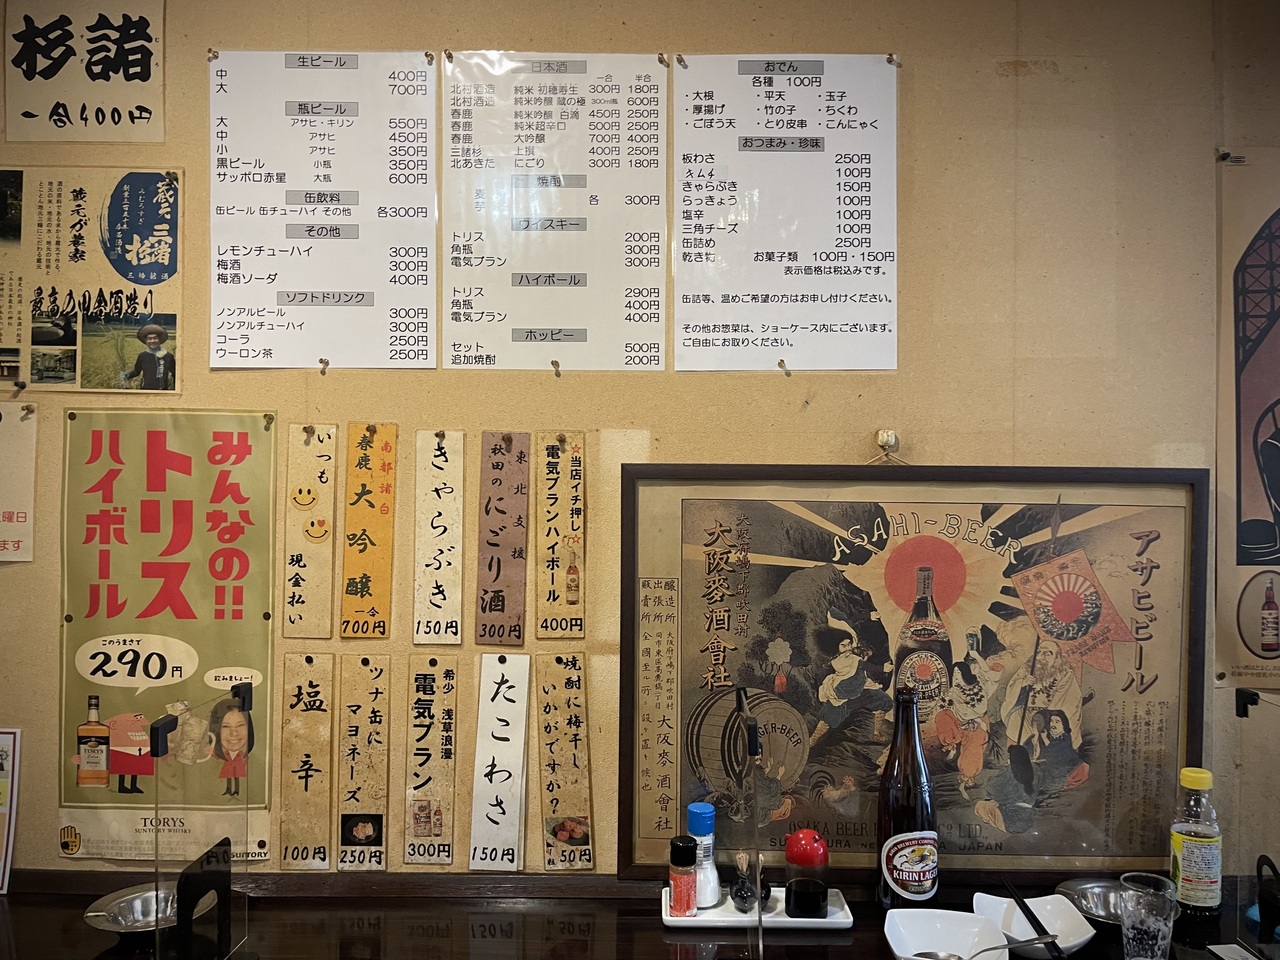 諸杉
一合400円
蔵元 三諸杉
蔵元が農家
最高の田舎酒造り
生ビール
中 400円
大 700円
瓶ビール
大 アサヒ・キリン 550円
中 アサヒ 450円
小 アサヒ 350円
黒ビール 小瓶 350円
サッポロ赤星 大瓶 600円
缶飲料
缶ビール 缶チューハイ その他 各300円
その他
レモンチューハイ 300円
梅酒 300円
梅酒ソーダ 400円
ソフトドリンク
ノンアルビール 300円
ノンアルチューハイ 300円
コーラ 250円
ウーロン茶 250円
日本酒
一合 半合
北村酒造 純米 初穂寿生 300円 180円
北村酒造 純米吟醸 蔵の極 300ml瓶 600円
春鹿 純米吟醸 白滴 450円 250円
春鹿 純米超辛口 500円 250円
春鹿 大吟醸 700円 400円
三諸杉 上撰 400円 250円
北あきた にごり 300円 180円
焼酎
麦
芋 各 300円
ウイスキー
トリス 200円
角瓶 300円
電気ブラン 300円
ハイボール
トリス 290円
角瓶 400円
電気ブラン 400円
ホッピー
セット 500円
追加焼酎 200円
おでん
各種 100円
・大根 ・平天 ・玉子
・厚揚げ ・竹の子 ・ちくわ
・ごぼう天 ・とり皮串 ・こんにゃく
おつまみ・珍味
板わさ 250円
キムチ 100円
きゃらぶき 150円
らっきょう 100円
塩辛 100円
三角チーズ 100円
缶詰め 250円
乾き物 お菓子類 100円・150円
表示価格は税込みです。
缶詰等、温めご希望の方はお申し付けください。
その他お惣菜は、ショーケース内にございます。
ご自由にお取りください。
みんなの!!
トリス
ハイボール
このうまさで
290円
飲みましょー!
TORYS
SUNTORY WHISKY
SUNTORY
いつも
現金払い
南都諸白
春鹿 大吟醸
一合
700円
きゃらぶき
150円
東北支援
秋田のにごり酒
300円
☆当店イチ押し☆
電気ブランハイボール
400円
塩辛
100円
ツナ缶に
マヨネーズ
250円
希少 浅草浪漫
電気ブラン
300円
たこわさ
150円
焼酎に梅干し
いかがですか?
50円
ASAHI-BEER
アサヒビール
大阪府嶋下郡吹田村
大阪麥酒會社
醸造所
出張所
販賣所
大阪麥酒會社
LAGER-BEER
OSAKA BEER
CO LTD.,
JAPAN
KIRIN LAGER
曜日
ます